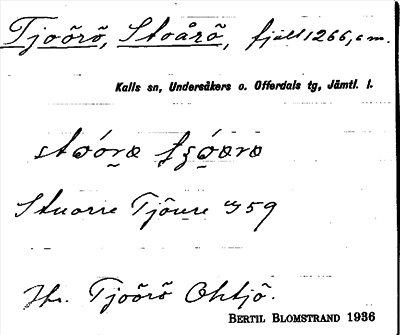 Tjoårå, Stoårå, fjäll 1266, c m.
Kalls sn, Undersåkers o. Offerdals tg, Jämtl. l.
Stuorre Tjåure 59
Jfr. Tjoårå Ohtjå.
BERTIL BLOMSTRAND 1936